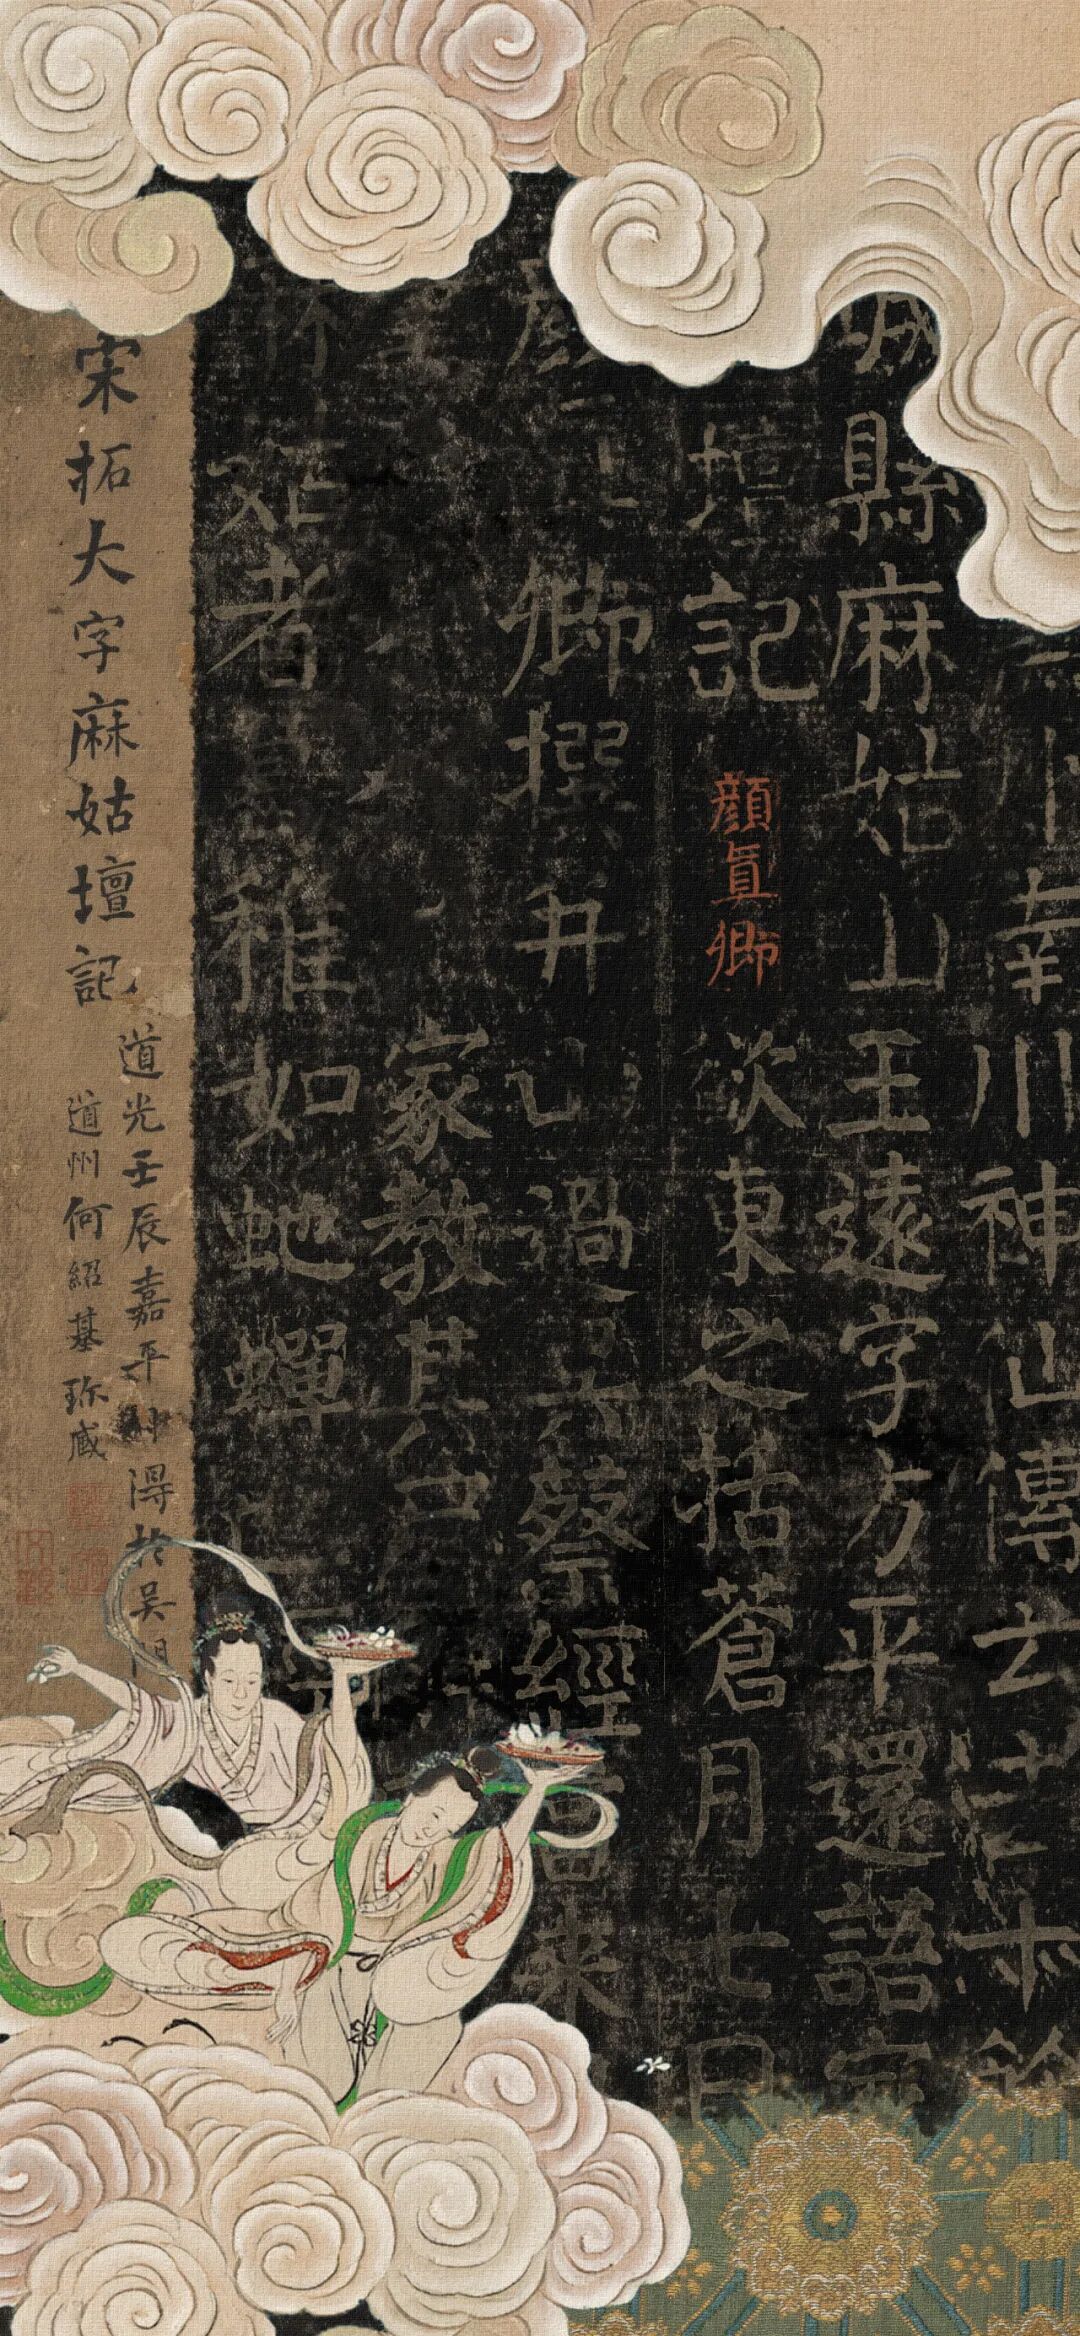 川神仙傳云去十餘
城縣麻姑山王遠字方平還語家
壇記 顏真卿 欲東之括蒼月七日
卿撰并山過蔡經當來
家教其尸
者稚如虵蟬
宋拓大字麻姑壇記
道光壬辰嘉平得於吳門
道州何紹基珍藏